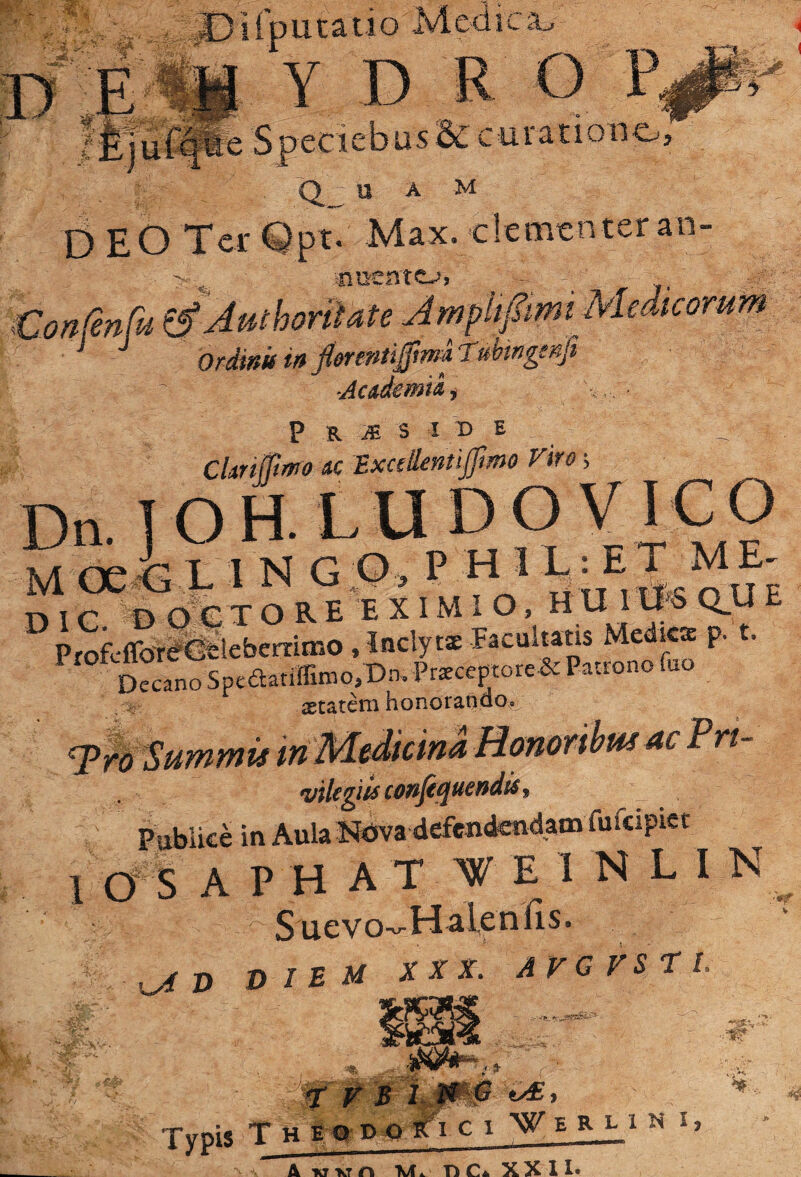 Diſputatio Medica
DE HYDROPE,
Ejuſque Speciebus & curatione,
QUAM
DEO Ter Opt. Max. clementer an-
nuente,
Conſenſu & Authoritate Ampliſsimi Medicorum
Ordinis in florentiſſimâ Tubingenſi
Academiâ,
PRÆSIDE
Clariſſimo ac Excellentiſſimo Viro;
Dn. JOH. LUDOVICO
MœGLINGO, PHIL: ET ME-
DIC. DOCTORE EXIMIO, HUIUSQUE
Profeſſore Celeberrimo, Inclytæ Facultatis Medicæ p. t.
Decano Spectatiſſimo, Dn. Præceptore & Patrono ſuo
ætatèm honorando.
Pro Summis in Medicinâ Honoribus ac Pri-
vilegiis conſequendis,
Publicè in Aula Nova defendendam ſuſcipiet
IOSAPHAT WEINLIN
Suevo-Halenſis.
AD DIEM XXX. AVGVSTI.
TVBINGÆ,
Typis THEODORICI WERLINI,
ANNO M. DC. XXII.